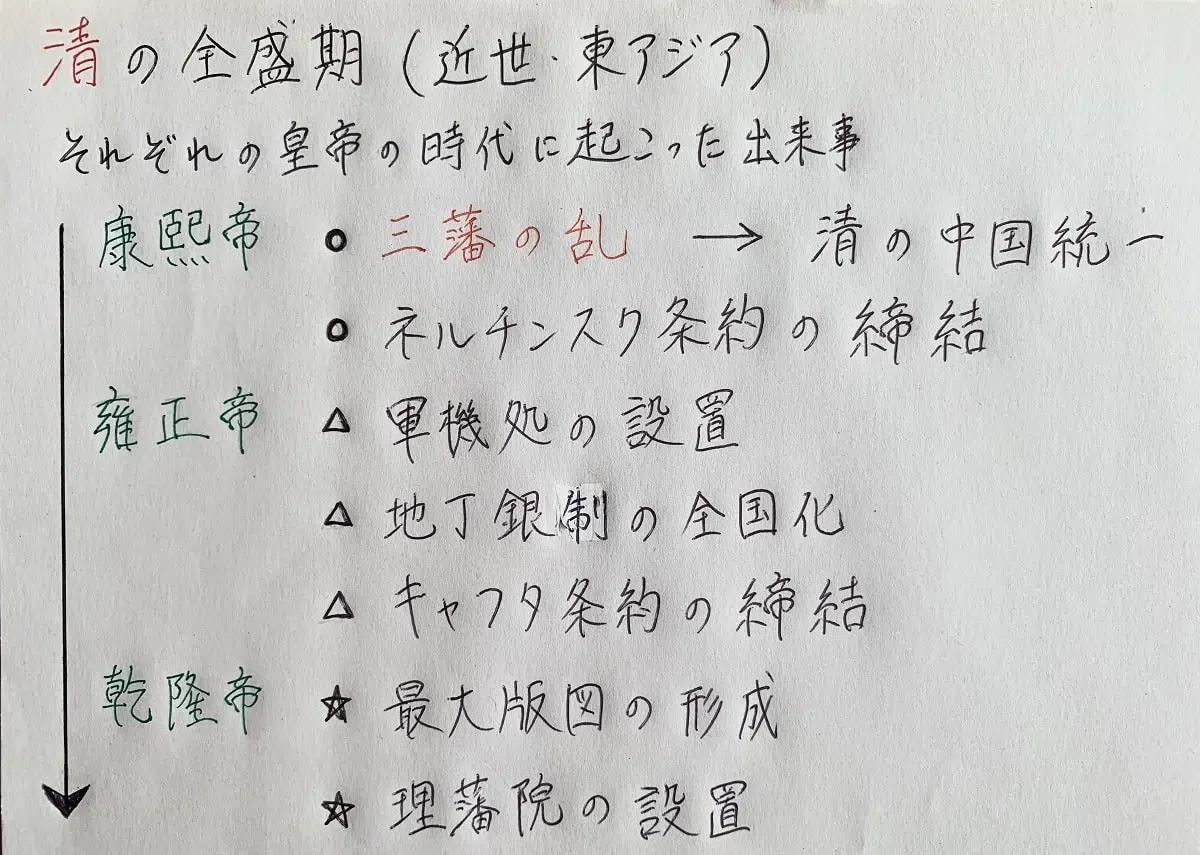 清の全盛期(近世・東アジア)
それぞれの皇帝の時代に起こった出来事
康熙帝 ○ 三藩の乱 → 清の中国統一
○ ネルチンスク条約の締結
雍正帝 △ 軍機処の設置
△ 地丁銀制の全国化
△ キャフタ条約の締結
乾隆帝 ☆ 最大版図の形成
☆ 理藩院の設置